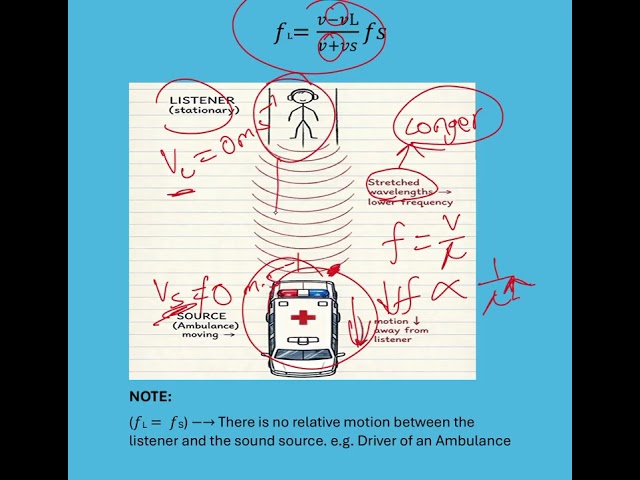 fL = v−vL / v+vs fs
LISTENER
(stationary)
VL = 0 m.s⁻¹
Longer
Stretched
wavelengths →
lower frequency
f = v/λ
↓f ∝ 1/λ↑
Vs ≠ 0 m.s⁻¹
SOURCE
(Ambulance)
moving →
motion ↓
away from
listener
NOTE:
(fL = fS) —→ There is no relative motion between the
listener and the sound source. e.g. Driver of an Ambulance